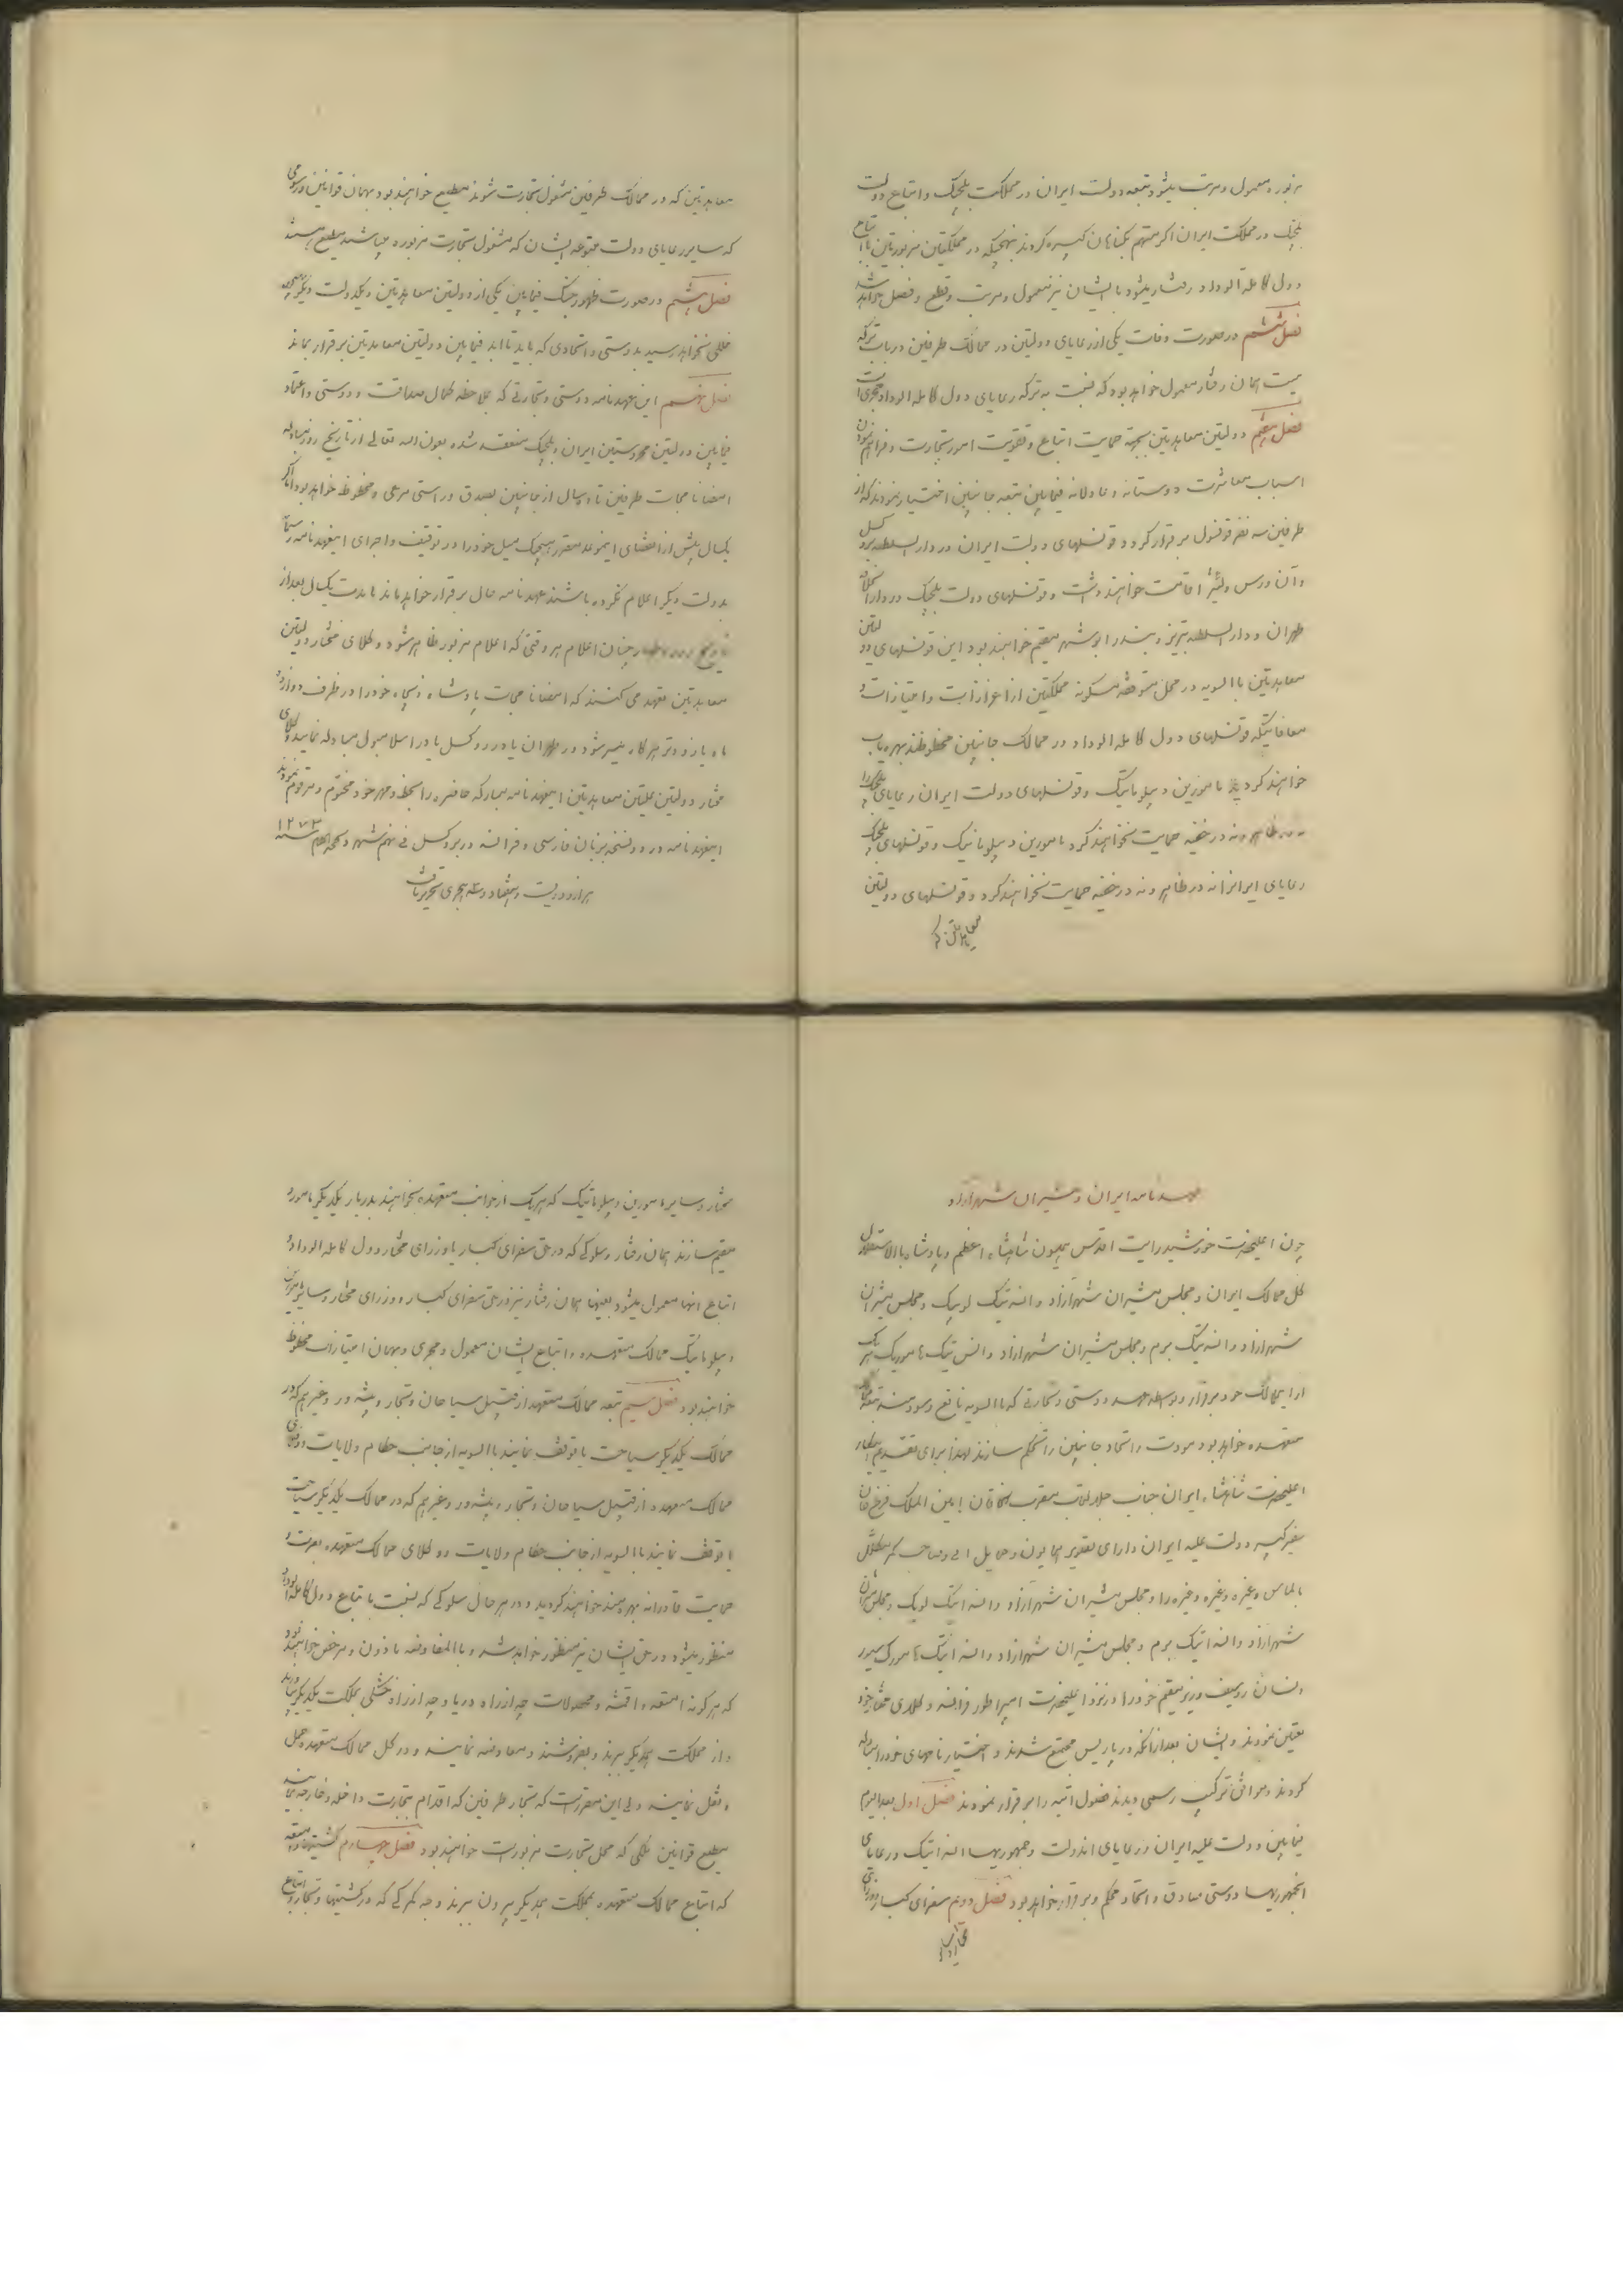 مزبوره معمول و مرتب میشود تبعه دولت ایران در مملکت بلجیک و اتباع دولت
بلجیک در مملکت ایران اگر متهم بگناهان کبیره گردند بنهجیکه در مملکتین مزبورتین با اتباع
دول کامله الوداد رفتار میشود با ایشان نیز معمول و مرتب و قطع و فصل خواهد شد
فصل ششم در صورت وفات یکی از رعایای دولتین در ممالک طرفین در باب ترکه
میت همان رفتار معمول خواهد بود که نسبت به ترکه رعایای دول کامله الوداد مجری است
فصل هفتم دولتین معاهدتین بجهة حمایت اتباع و تقویت امور تجارت و فراهم نمودن
اسباب معاشرت دوستانه و عادلانه فیمابین تبعه جانبین اختیار نمودند که از
طرفین سه نفر قونسول برقرار گردد قونسلهای دولت ایران در دارالسلطنه بروکسل
و آن ورس و لیژ اقامت خواهند داشت و قونسلهای دولت بلجیک در دارالخلافه
طهران و دارالسلطنه تبریز و بندر ابوشهر مقیم خواهند بود این قونسلهای دولتین
معاهدتین بالسویه در محل متوقفه مسکونه مملکتین از اعزازات و امتیازات و
معافاتیکه قونسلهای دول کامله الوداد در ممالک جانبین محظوظند بهره یاب
خواهند گردید مامورین دیپلوماتیک و قونسلهای دولت ایران رعایای بلجیک را
نه در ظاهر و نه در خفیه حمایت نخواهند کرد مامورین دیپلوماتیک و قونسلهای بلجیک
رعایای ایرانرا نه در ظاهر و نه در خفیه حمایت نخواهند کرد و قونسلهای دولتین
معاهدتین که
معاهدتین که در ممالک طرفین مشغول تجارت شوند مطیع خواهند بود بهمان قوانین و رسومی
که سایر رعایای دولت متبوعه ایشان که مشغول تجارت مزبوره میباشند مطیع هستند
فصل هشتم در صورت ظهور جنگ فیمابین یکی از دولتین معاهدتین و یکدولت دیگر هیچ
خللی نخواهد رسید بدوستی و اتحادی که باید تا ابد فیمابین دولتین معاهدتین برقرار بماند
فصل نهم این عهدنامه دوستی و تجارتی که بملاحظه کمال صداقت و دوستی و اعتماد
فیمابین دولتین محروستین ایران و بلجیک منعقد شده بعون الله تعالی از تاریخ روز مبادله
امضانامجات طرفین تا سال از جانبین بصدق و راستی مرعی و محفوظ خواهد بود
یکسال پیش از انقضای اینموعد مقرر هیچیک میل خود را در توقیف و اجرای اینعهدنامه رسماً
بدولت دیگر اعلام نکرده باشند عهدنامه حال برقرار خواهد ماند تا مدت یکسال بعد از
چنان اعلام هر وقتی که اعلام مزبور ظاهر شود وکلای مختار دولتین
معاهدتین تعهد می کنند که امضانامجات پادشاه ذیجاه خود را در ظرف دوازده
ماه یا زودتر هرگاه میسر شود در طهران یا در بروکسل یا در اسلامبول مبادله نمایند وکلای
مختار دولتین علیتین معاهدتین اینعهدنامه مبارکه حاضره را بخط و مهر خود مختوم و مرقوم نمودند
اینعهدنامه در دو نسخه بزبان فارسی و فرانسه در بروکسل فی نهم شهر ذیحجة الحرام سنه ۱۲۷۳
هزار و دویست و هفتاد و سه هجری تحریر یافت
عهدنامه ایران و مشیران شهر آزاد
چون اعلیحضرت خورشید رایت اقدس همیون شاهنشاه اعظم و پادشاه بالاستقلال
کل ممالک ایران و مجلس مشیران شهر آزاد و انسه تیک لوبیک و مجلس مشیران
شهر آزاد و انسه تیک برم و مجلس مشیران شهر آزاد و انس تیک هامبورگ هر یک
از اینممالک خود برقرار و بواسطه عهد دوستی و تجارتی که بالسویه نافع و سودمند تبعه ممالک
متعهده خواهد بود مودت و اتحاد جانبین را مستحکم سازند لهذا برای تقدیم اینکار
اعلیحضرت شاهنشاه ایران جناب جلالتمآب مقرب الخاقان امین الملک فرخ خان
سفیر کبیر دولت علیه ایران دارای تصویر همایون و حمایل آبی و صاحب کمر مکلل
بالماس و غیره و غیره و غیره را و مجلس مشیران شهر آزاد و انسه اتیک لوبیک و مجلس مشیران
شهر آزاد و انسه اتیک برم و مجلس مشیران شهر آزاد و انسه اتیک هامبورگ مسیو
وزیر مقیم خود را در نزد اعلیحضرت امپراطور فرانسه وکلای مختار خود
تعیین نمودند و ایشان بعد از آنکه در پاریس مجتمع شدند و اختیارنامهای خود را مبادله
کردند و موافق ترکیب رسمی دیدند فصول آتیه را برقرار نمودند فصل اول بعد الیوم
فیمابین دولت علیه ایران و رعایای اندولت و جمهوریهای انسه اتیک و رعایای
انجمهوریها دوستی صادق و اتحاد محکم و برقرار خواهد بود فصل دویم سفرای کبار و وزرای
مختار و سایر
مختار و سایر مامورین دیپلوماتیک که هر یک از جوانب متعهده بخواهند بدربار یکدیگر مامور و
مقیم سازند همان رفتار و سلوکی که در حق سفرای کبار یا وزرای مختار دول کامله الوداد و
اتباع آنها معمول میشود بعینها همان رفتار نیز در حق سفرای کبار و وزرای مختار و سایر مامورین
دیپلوماتیک ممالک متعهده و اتباع ایشان معمول و مجری و بهمان امتیازات محظوظ
خواهند بود فصل سیم تبعه ممالک متعهد از قبیل سیاحان و تجار و پیشه ور و غیرهم که در
ممالک یکدیگر سیاحت یا توقف نمایند بالسویه از جانب حکام ولایات و وکلای
ممالک متعهده از قبیل سیاحان و تجار و پیشه ور و غیرهم که در ممالک یکدیگر سیاحت
یا توقف نمایند بالسویه از جانب حکام ولایات و وکلای ممالک متعهده بعزت و
حمایت قادرانه بهره مند خواهند گردید و در هر حال سلوکی که نسبت با تباع دول کامله الوداد
منظور میشود در حق ایشان نیز منظور خواهد شد و بالمعاوضه ماذون و مرخص خواهند بود
که هر گونه امتعه و اقمشه و محصولات چه از راه دریا و چه از راه خشکی بمملکت یکدیگر بیاورند
و از مملکت همدیگر ببرند و بفروشند و معاوضه نمایند و در کل ممالک متعهده حمل
و نقل نمایند ولی این مقرر است که تجار طرفین که اقدام بتجارت داخله و خارجه نمایند
مطیع قوانین ملکی که محل تجارت مزبور است خواهند بود فصل چهارم کشتیها و امتعه
که اتباع ممالک متعهده بمملکت همدیگر بیرون ببرند وجه گمرکی که در کشتیها و تجار و اتباع